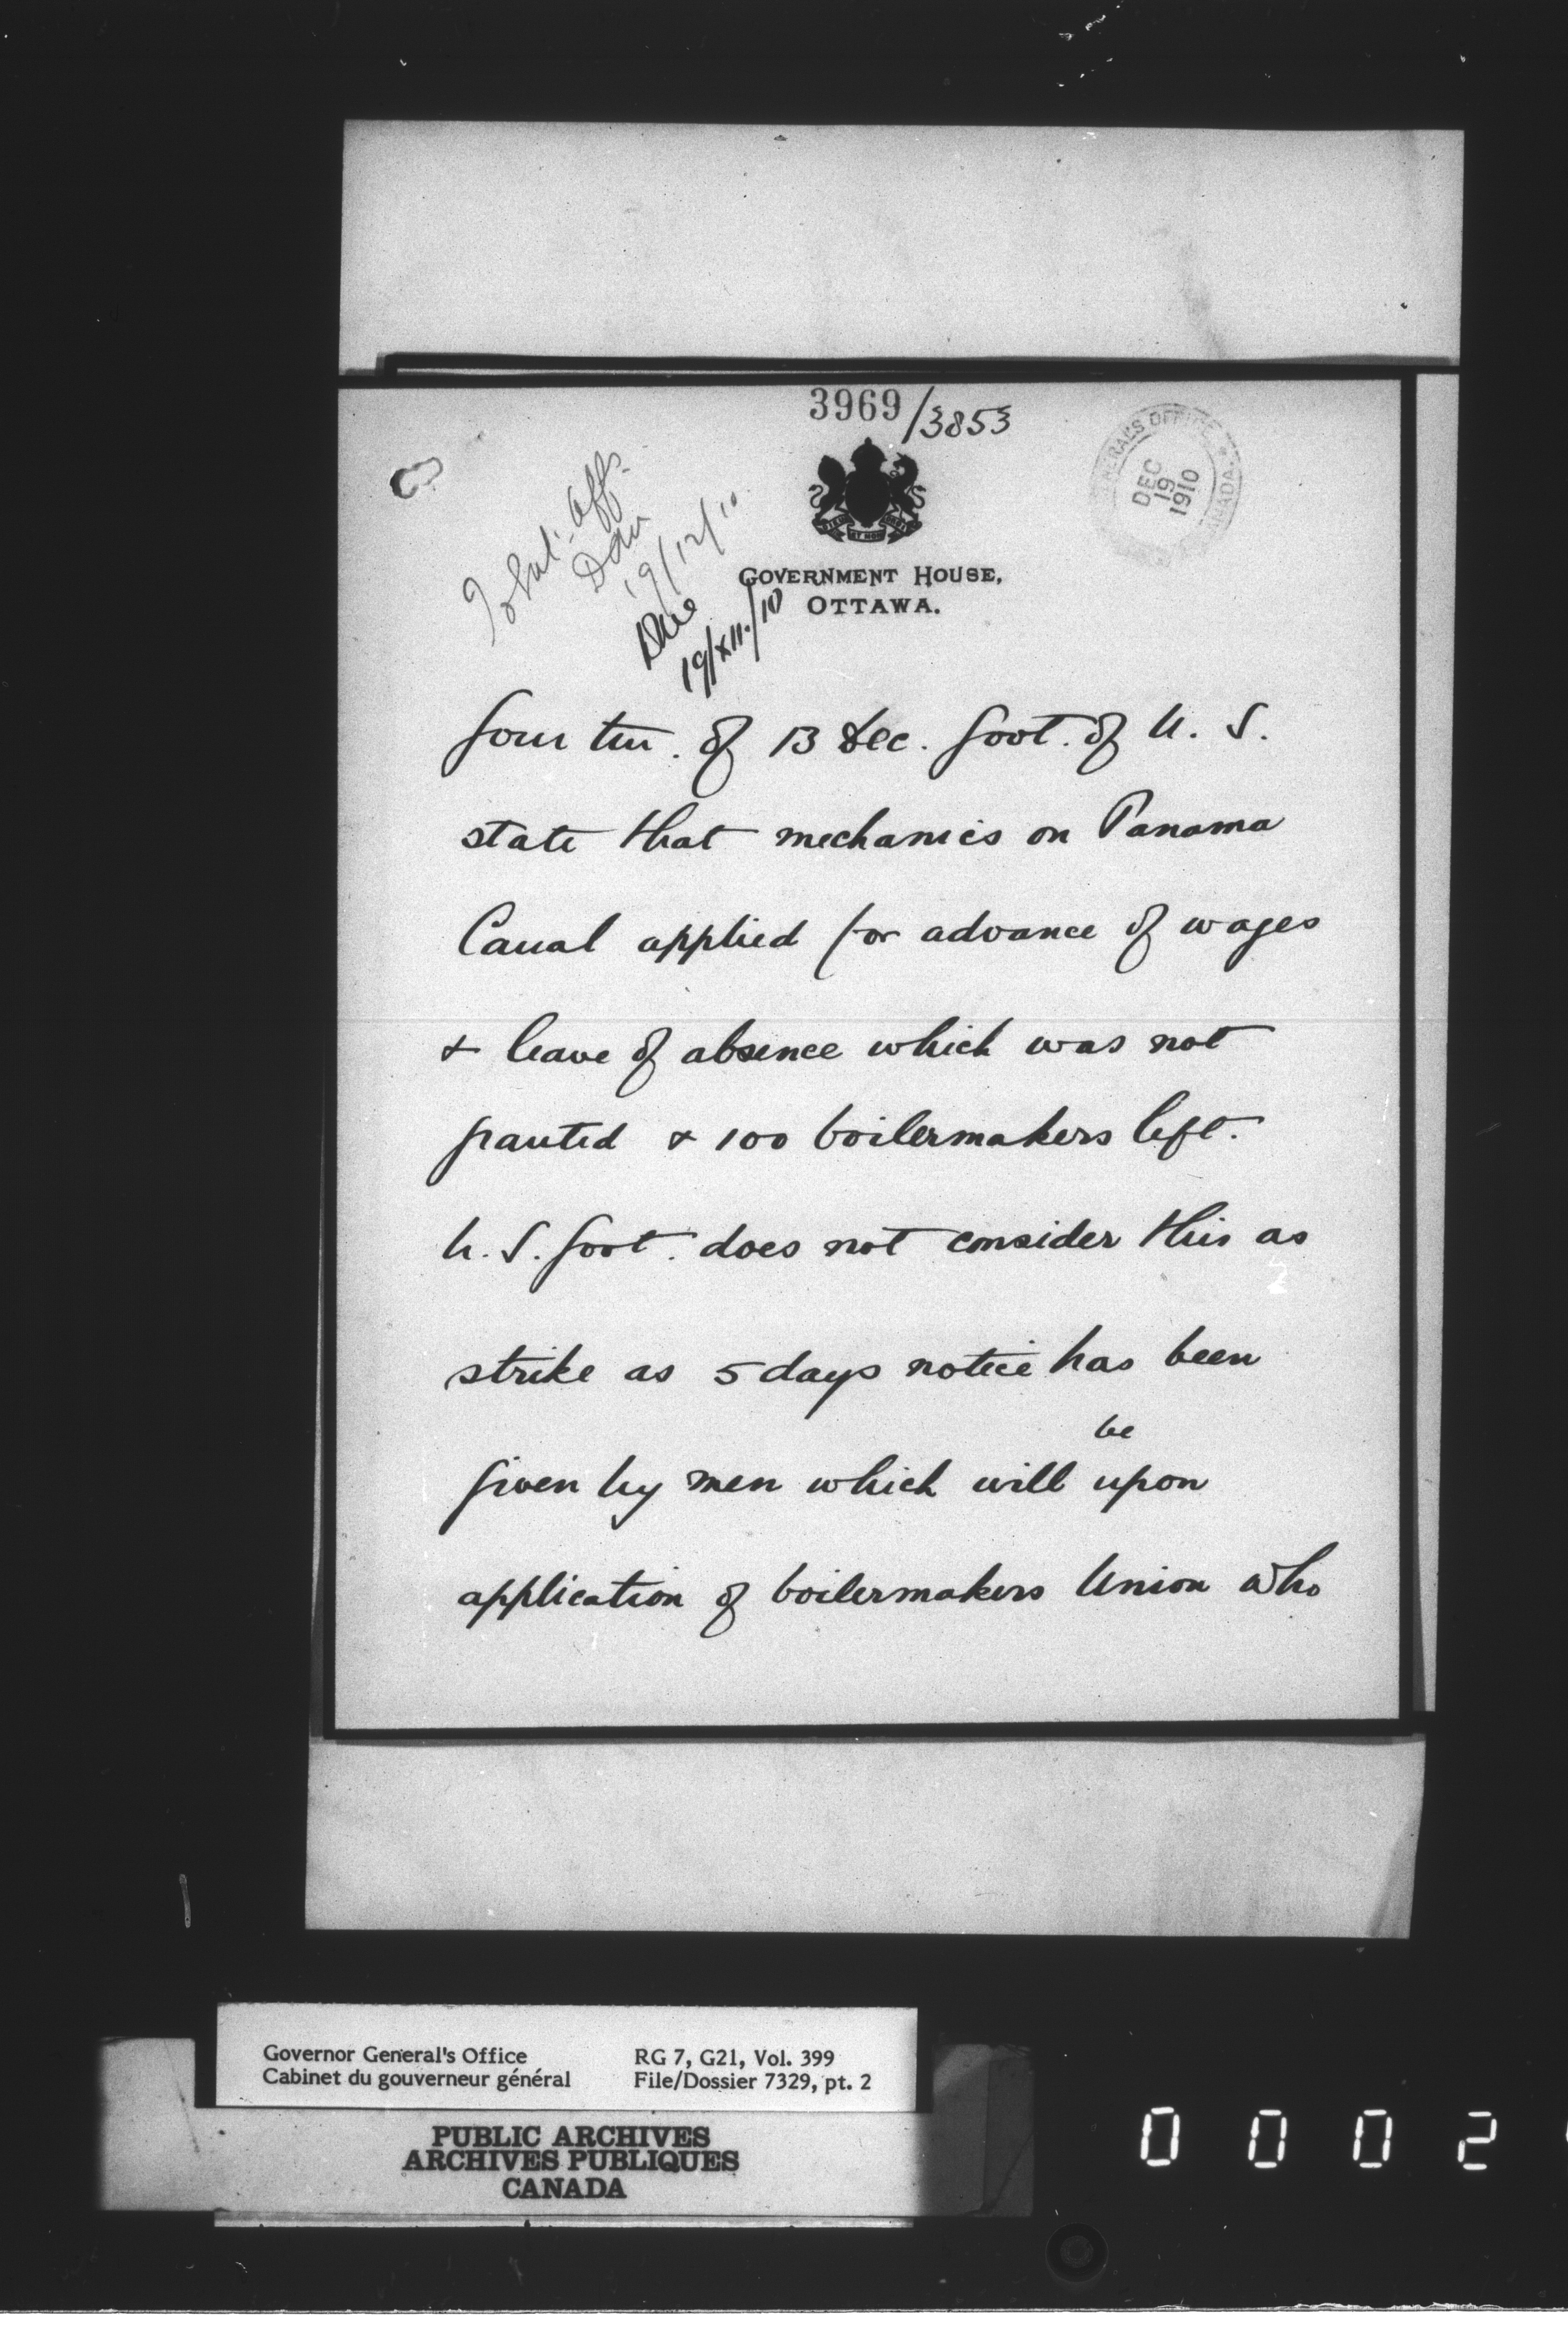 3969/3853
GENERAL'S OFFICE
DEC
19
1910
CANADA
Extnl. Affs.
19/12/10
19/XII./10
GOVERNMENT HOUSE,
OTTAWA.
Your of 13 Dec. Govt. of U. S.
state that mechanics on Panama
Canal applied for advance of wages
& leave of absence which was not
granted & 100 boilermakers left.
U. S. Govt. does not consider this as
strike as 5 days notice has been
be
given by men which will upon
application of boilermakers Union who
Governor General's Office
Cabinet du gouverneur général
RG 7, G21, Vol. 399
File/Dossier 7329, pt. 2
PUBLIC ARCHIVES
ARCHIVES PUBLIQUES
CANADA
0 0 0 2